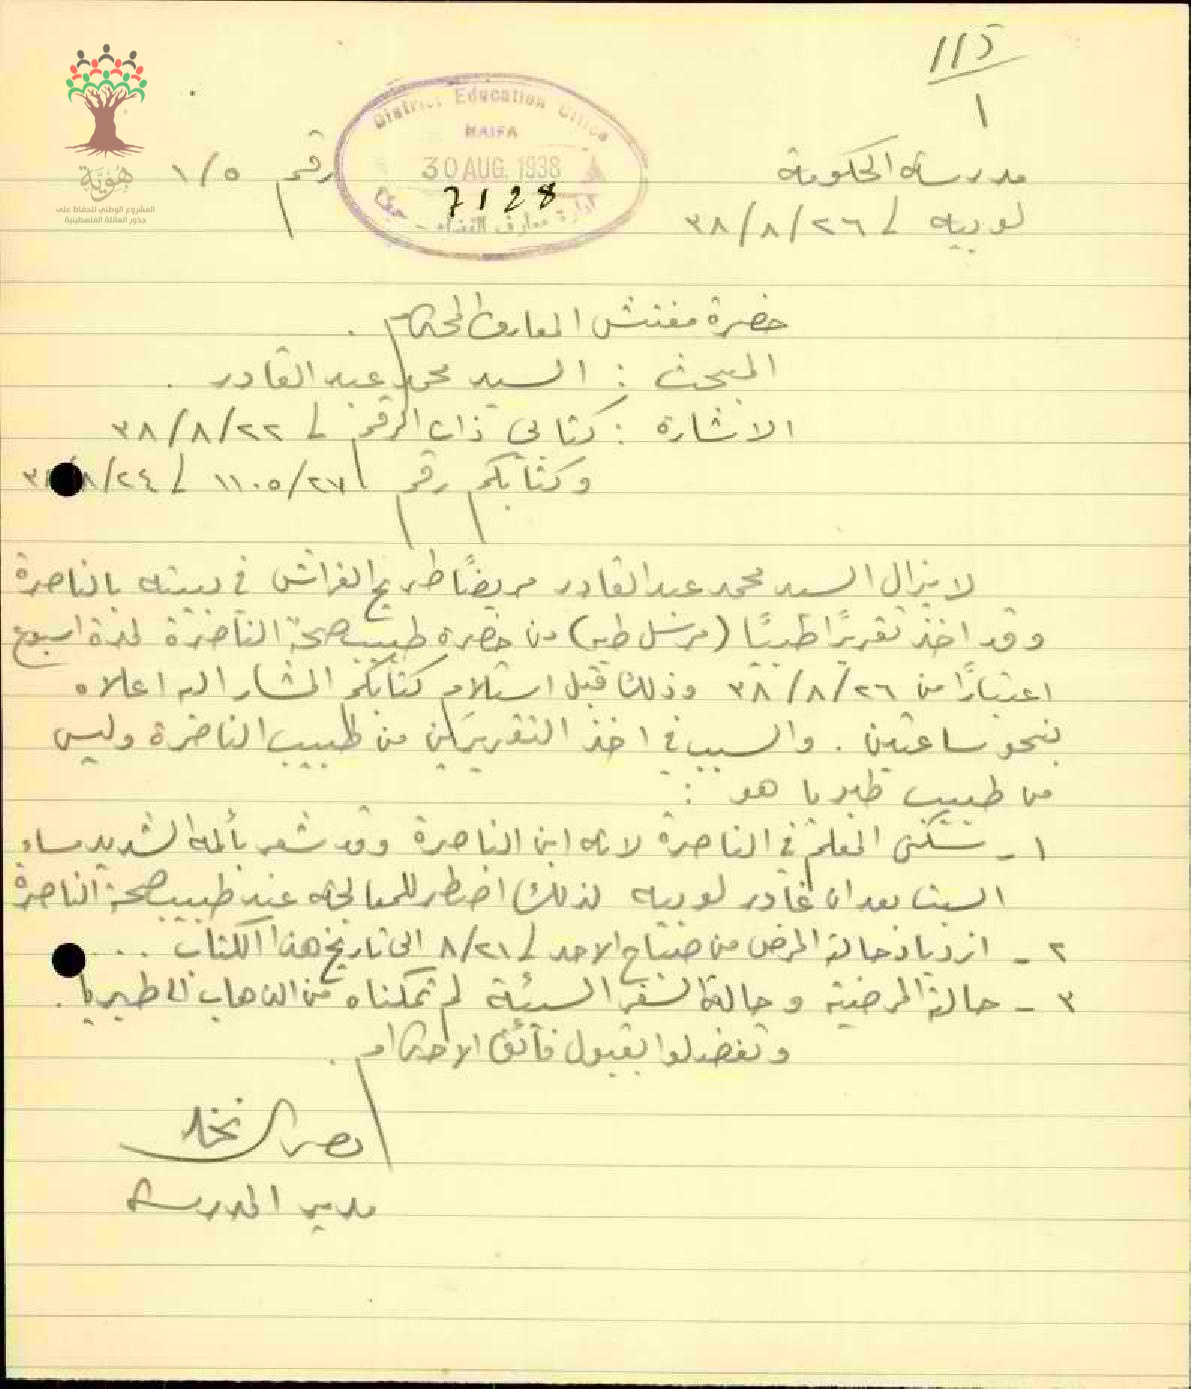 115
1
مدرسة الحكومة
لوبيه في ٢٦/٨/٣٨
رقم ١/٥
District Education Office
HAIFA
30 AUG. 1938
7128
ادارة معارف القضاء - حيفا
هُويَّة
المشروع الوطني للحفاظ على
جذور العائلة الفلسطينية
حضرة مفتش المعارف المحترم .
المبحث : السيد محمد عبد القادر .
الاشارة : كتابي ذات الرقم في ٢٢/٨/٣٨
وكتابكم رقم ١١٠٥/٢٧ في ٢٤/٨/٣٨
لا يزال السيد محمد عبد القادر مريضًا طريح الفراش في بيته بالناصرة
وقد اخذ تقريرًا طبيًا ( طبي) من حضرة طبيب صحة الناصرة لمدة اسبوع
اعتبارًا من ٢٦/٨/٣٨ وذلك قبل استلام كتابكم المشار اليه اعلاه
بنحو ساعتين . والسبب في اخذ التقريرين من طبيب الناصرة وليس
من طبيب طبريا هو :
١- سكنى المعلم في الناصرة لانه ابن الناصرة وقد شعر بألمه الشديد مساء
السبت بعد ان غادر لوبيه لذلك اضطر للمعالجة عند طبيب صحة الناصرة
٢- ازدياد حالة المرض من صباح الاحد في ٨/٢١ الى تاريخ هذا الكتاب ....
٣- حالته المرضية وحالة السفر السيئة لم تمكناه من الذهاب الى طبريا .
وتفضلوا بقبول فائق الاحترام .
مدير المدرسة